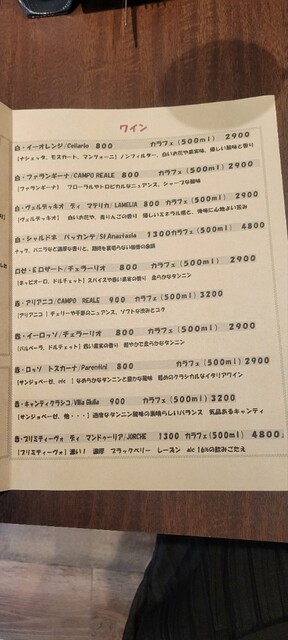 ワイン
白・イーオレンジ/Cellario 800 カラフェ(500ml) 2900
(ナシェッタ、モスカート、マンツォーニ) ノンフィルター、白いお花や果実味、優しい酸味と香り
白・ファランギーナ/CAMPO REALE 800 カラフェ(500ml) 2900
(ファランギーナ) フローラルやトロピカルなニュアンス、シャープな酸味
白・ヴェルディッキオ ディ マテリカ/LAMELIA 800 カラフェ(500ml) 2900
(ヴェルディッキオ) 白いお花や、青りんごの香り 優しいミネラル感と、後味に心地よい苦み
白・シャルドネ バッカンテ/St.Anastasia 1300カラフェ(500ml) 4800
ナッツ、バニラなど濃厚な香りと、期待を裏切らない
ロゼ・エ ロザート/チェラーリオ 800 カラフェ(500ml) 2900
(ネッビオーロ、ドルチェット) スパイスや赤い果実の香り 柔らかなタンニン
赤・アリアニコ/CAMPO REALE 900 カラフェ(500ml) 3200
(アリアニコ) チェリーや干草のニュアンス、ソフトな渋みとコク
赤・イーロッソ/チェラーリオ 800 カラフェ(500ml) 2900
(バルベーラ、ドルチェット) 赤い果実の香り 軽やかで柔らかなタンニン
赤・ロッソ トスカーナ/Parentini 800 カラフェ(500ml) 2900
(サンジョベーゼ、etc) なめらかなタンニンと豊かな風味 軽めのクラシカルなイタリアワイン
赤・キャンティクラシコ/Villa Giulia 900 カラフェ(500ml) 3200
(サンジョベーゼ、他・・・) 適度なタンニン酸味の素晴らしいバランス 気品あるキャンティ
赤・プリミティーヴォ ディ マンドゥーリア/JORCHE 1300 カラフェ(500ml) 4800
(プリミティーヴォ) 濃い! 濃厚 ブラックベリー レーズン etc 16%の飲みごたえ